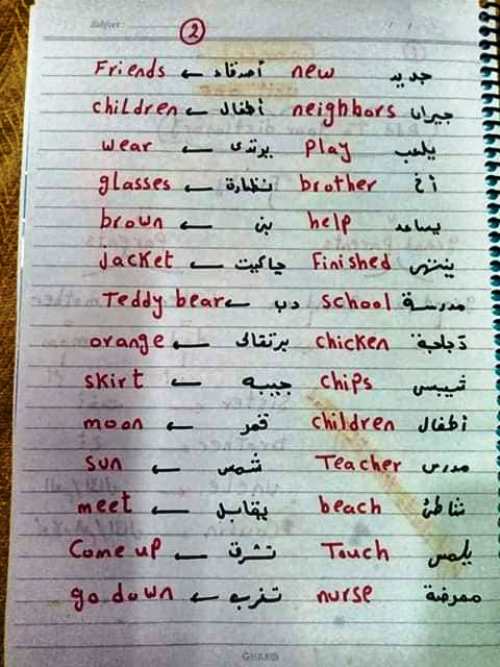 Subject :
2
Friends ← أصدقاء new جديد
children ← أطفال neighbors جيران
wear ← يرتدى play يلعب
glasses ← نظارة brother أخ
brown ← بنى help يساعد
Jacket ← جاكيت Finished ينتهى
Teddy bear ← دب school مدرسة
orange ← برتقالى chicken دجاجة
skirt ← جيبه chips شيبس
moon ← قمر children أطفال
sun ← شمس Teacher مدرس
meet ← يقابل beach شاطئ
Come up ← تشرق Touch يلمس
go down ← تغرب nurse ممرضة